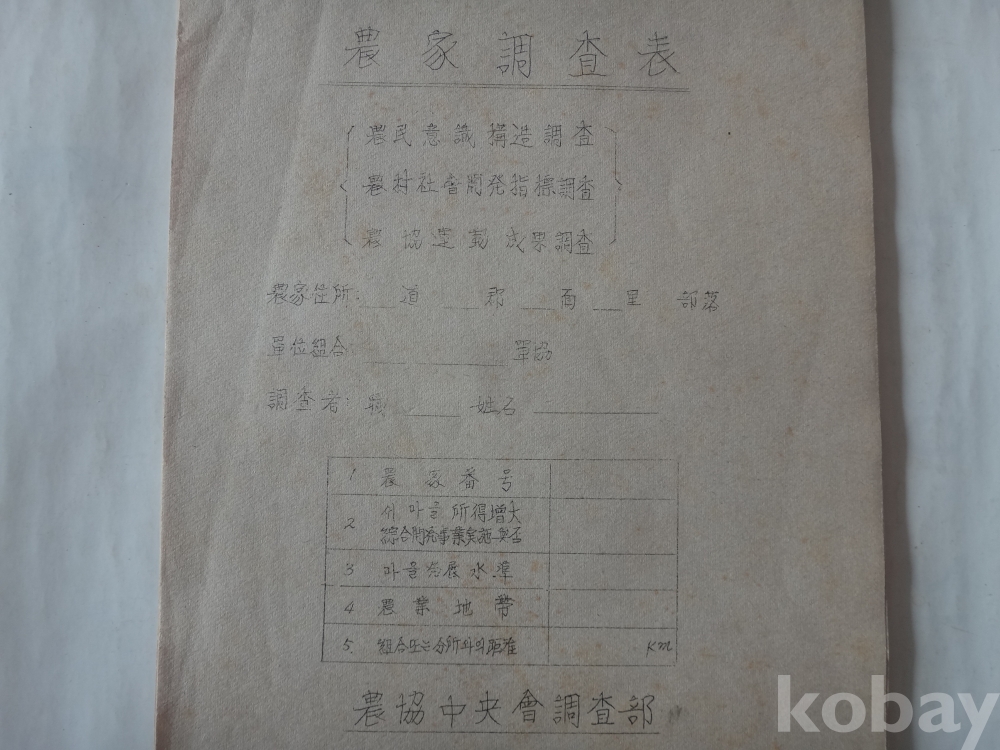 農家調査表
農民意識構造調査
農村社會開発指標調査
農協運動成果調査
農家住所: ___道 ___郡 ___面 ___里 部落
單位組合: ______ 單協
調査者: 職 ____ 姓名 ________
1 農家番号
2 새마을所得增大
綜合開発事業実施與否
3 마을発展水準
4 農業地帶
5. 組合또는分所와의距離 KM
農協中央會調査部
kobay